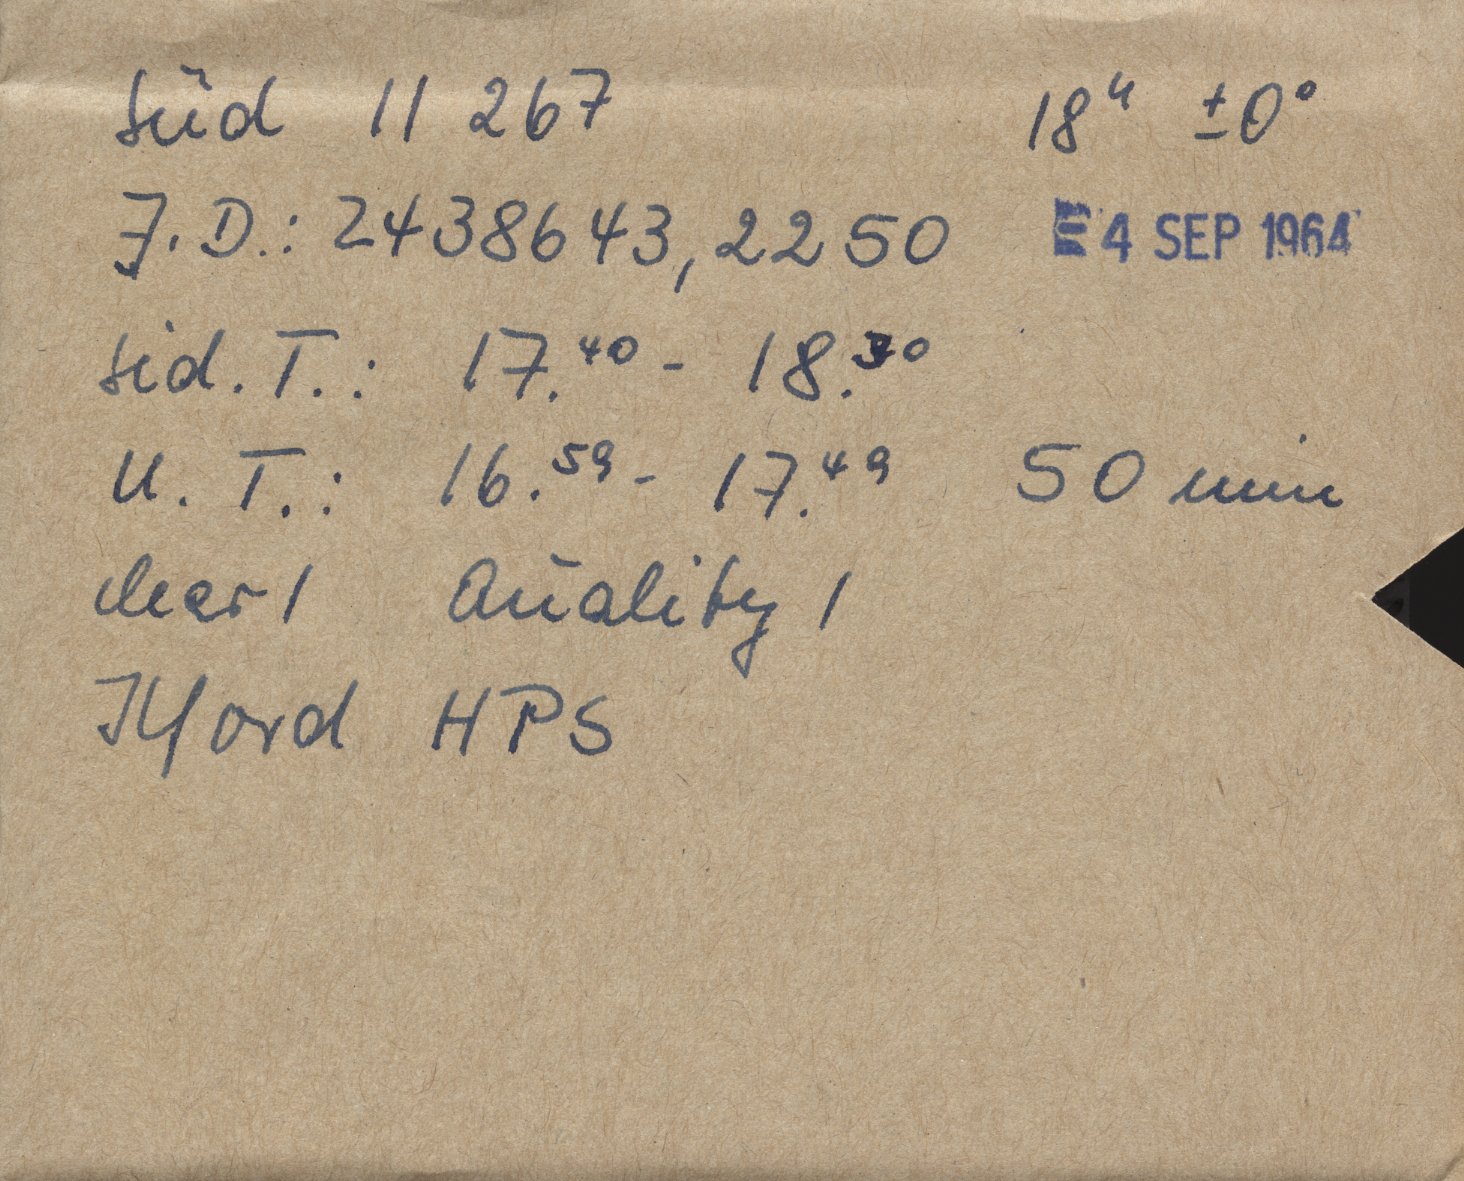 Süd 11 267 18ʰ ±0°
J.D.: 2438643,2250 4 SEP 1964
sid. T.: 17.⁴⁰ - 18.³⁰
U. T.: 16.⁵⁹ - 17.⁴⁹ 50 min
clear 1 Quality 1
Ilford HPS